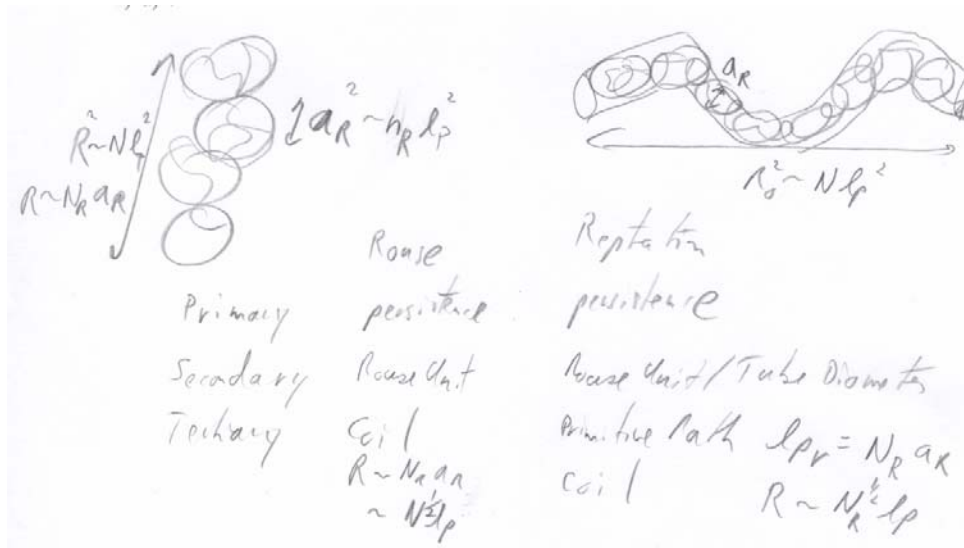 R² ~ Nlp²
R ~ N_R a_R
a_R² ~ n_R lp²
a_R
r₀² ~ Nlp²
Rouse Reptation
Primary persistence persistence
Secondary Rouse Unit Rouse Unit/Tube Diameter
Tertiary Coil Primitive Path lpr = N_R a_R
R ~ N_R a_R coil R ~ N_R^½ lp
~ N^½ lp